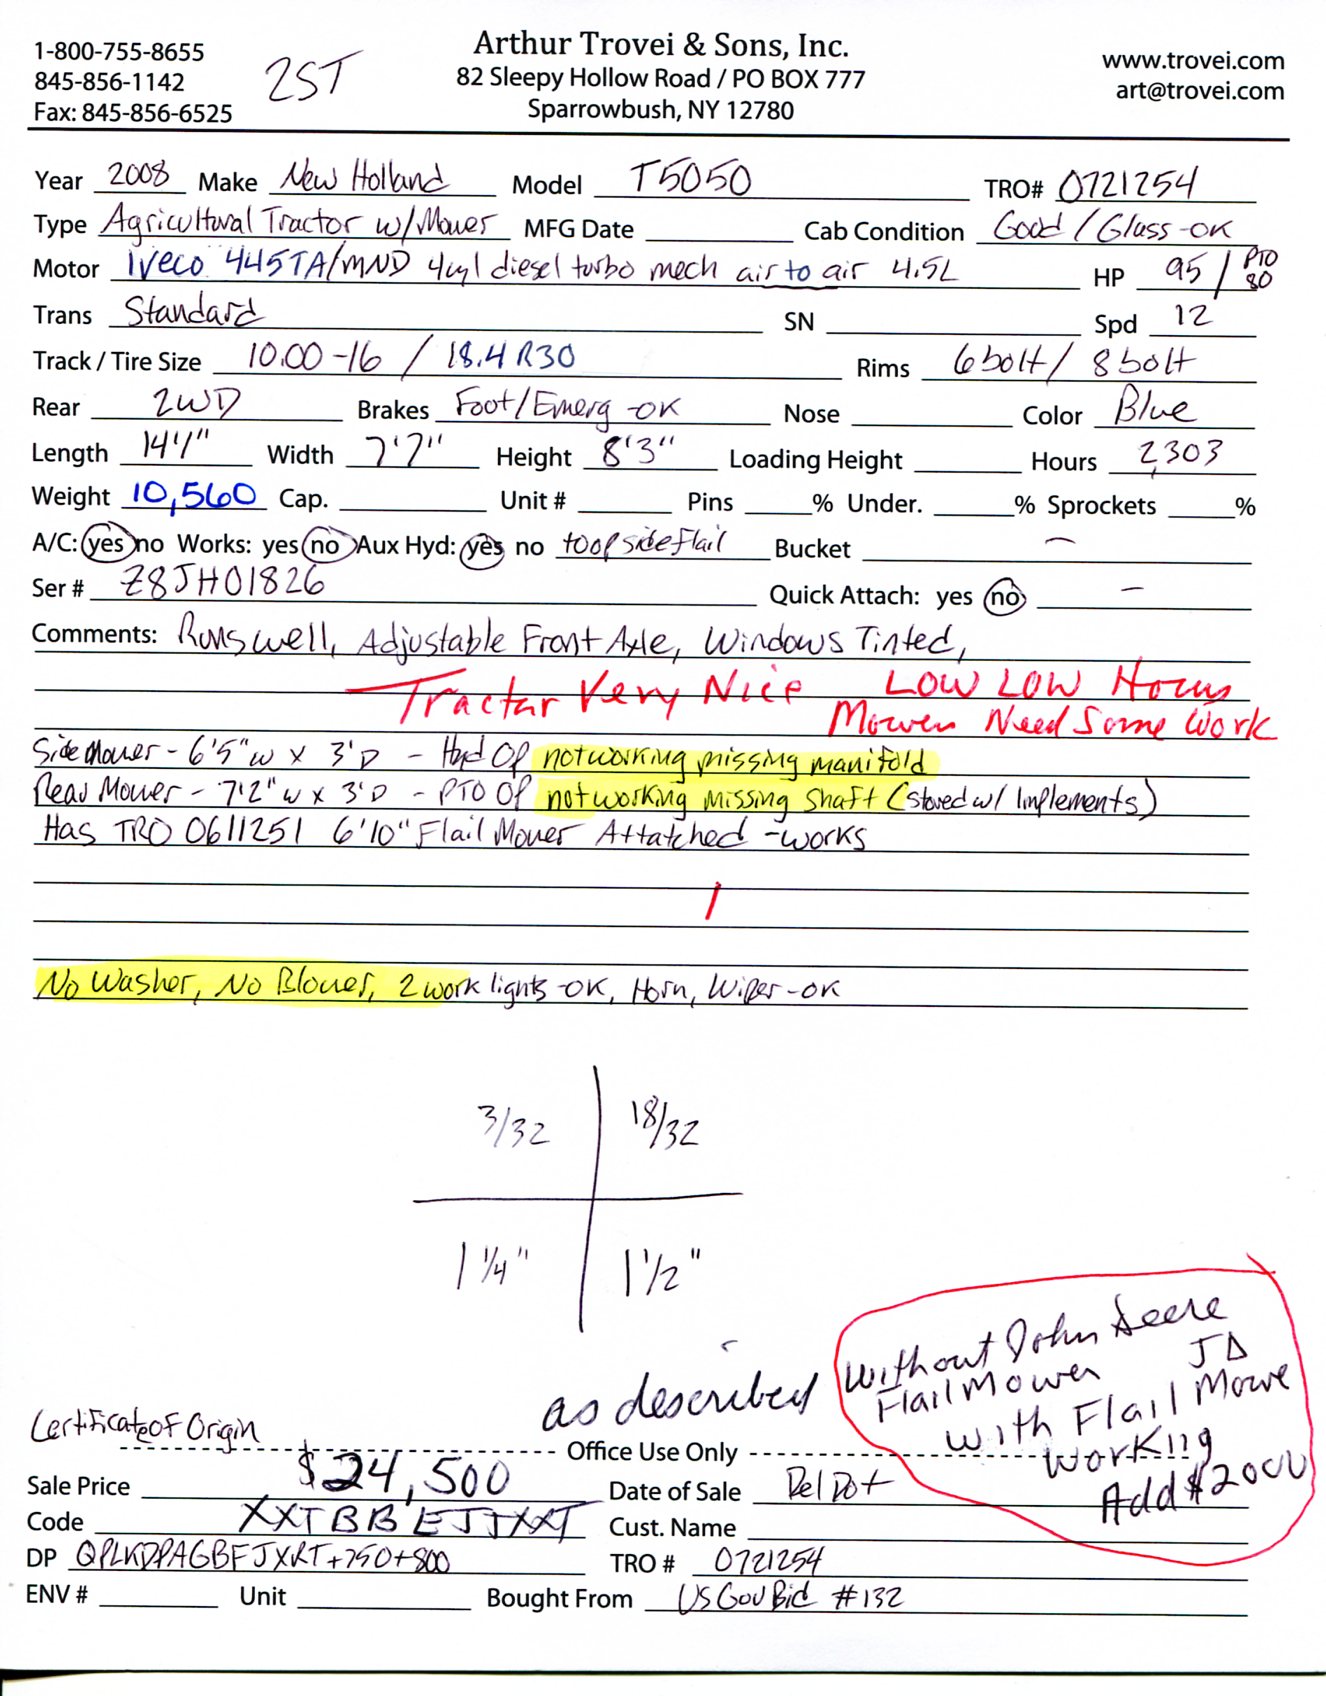 1-800-755-8655
845-856-1142
Fax: 845-856-6525
2ST
Arthur Trovei & Sons, Inc.
82 Sleepy Hollow Road / PO BOX 777
Sparrowbush, NY 12780
www.trovei.com
art@trovei.com
Year 2008 Make New Holland Model T5050 TRO# 0721254
Type Agricultural Tractor w/Mower MFG Date Cab Condition Good / Glass-OK
Motor Iveco 445TA/MND 4cyl diesel turbo mech air to air 4.5L HP 95 / PTO 80
Trans Standard SN Spd 12
Track / Tire Size 10.00-16 / 18.4R30 Rims 6bolt / 8bolt
Rear 2WD Brakes Foot/Emerg-OK Nose Color Blue
Length 14'1" Width 7'7" Height 8'3" Loading Height Hours 2,303
Weight 10,560 Cap. Unit # Pins % Under. % Sprockets %
A/C: yes no Works: yes no Aux Hyd: yes no to op side flail Bucket —
Ser # Z8JH01826 Quick Attach: yes no —
Comments: Runs well, Adjustable Front Axle, Windows Tinted,
Tractor Very Nice LOW LOW Hours
Mowers Need Some Work
Side Mower - 6'5"W x 3'D - Hyd Op not working missing manifold
Rear Mower - 7'2"W x 3'D - PTO Op not working missing shaft (stored w/ Implements)
Has TRO 0611251 6'10" Flail Mower Attatched -works
No Washer, No Blower, 2 work lights-OK, Horn, Wiper-OK
3/32 18/32
1 1/4" 1 1/2"
as described
Without John Deere
Flail Mower JD
with Flail Mowe
working
Add $2000
Certificate of Origin
Office Use Only
Sale Price $24,500 Date of Sale DelDot
Code XXTBBEJJXXT Cust. Name
DP QPLKDPAGBFJXRT+750+800 TRO # 0721254
ENV # Unit Bought From US Gov Bid #132